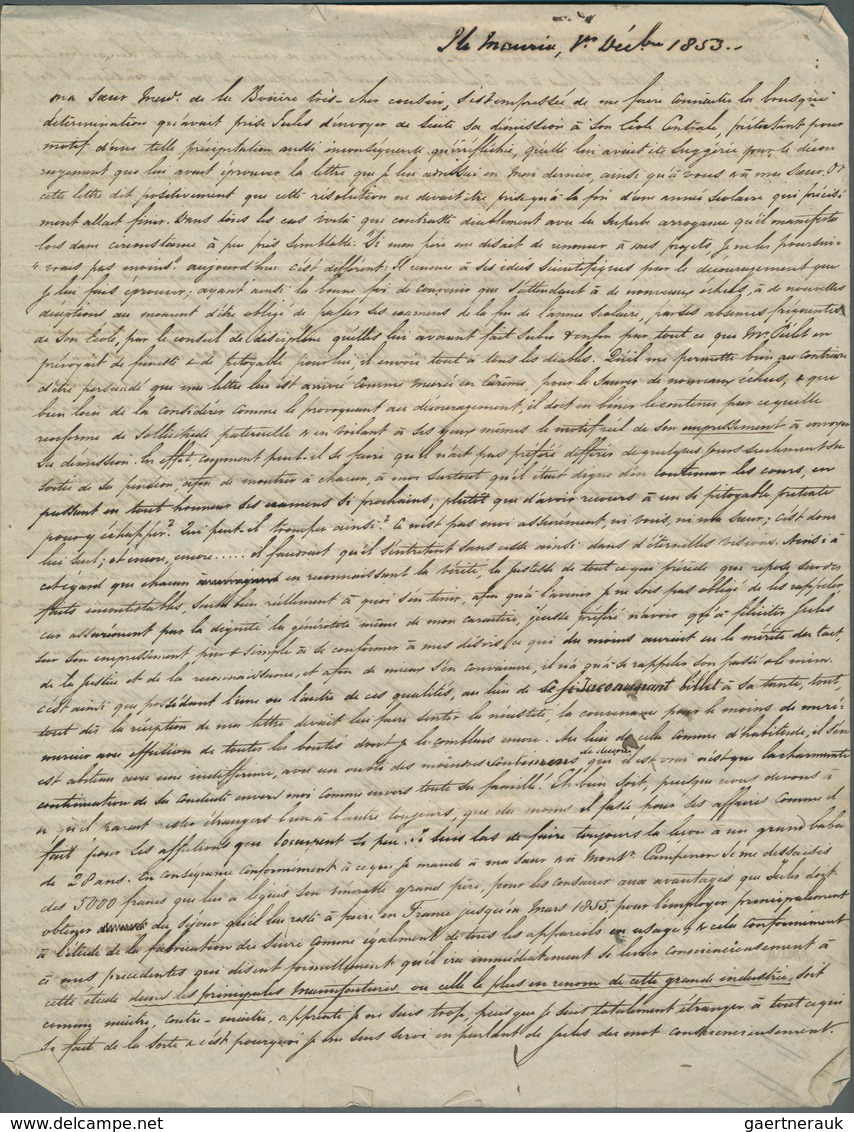 Ile Maurice, 1er Décbre 1853.
ma Sœur Mewd. de la Bonière très-cher cousin, s'est empressée de me faire connaître la brusque
détermination qu'avait prise Jules d'envoyer de suite sa démission à son Ecole Centrale, prétextant pour
motif d'une telle précipitation aussi inconséquente qu'irréfléchie, qu'elle lui avait été suggérée pour le décou
ragement que lui avait éprouver la lettre que je lui adressai en mars dernier, ainsi qu'à vous & à ma Sœur. Or
cette lettre dit positivement que cette résolution ne devait être prise qu'à la fin d'une année scolaire qui précisé
ment allait finir. Dans tous les cas voilà qui contraste diablement avec la superbe arrogance qu'il manifesta
lors dans circonstance à peu près semblable: "Si mon père me disait de renoncer à mes projets, je ne les poursui-
"vrais pas moins". aujourd'hui c'est différent: Il renonce à ses idées scientifiques pour le découragement que
je lui fais éprouver; ayant ainsi la bonne foi de convenir que s'attendant à de nouveaux échecs, à de nouvelles
déceptions au moment d'être obligé de passer ses examens de la fin de l'année scolaire, par ses absences fréquentes
de son Ecole, par le conseil de discipline qu'elles lui avaient fait subir & enfin par tout ce que Mr. en
prévoyait de funeste & de pitoyable pour lui, il envoie tout à tous les diables. Qu'il me permette bien au contraire
d'être persuadé que ma lettre lui est arrivée comme marée en Carême, pour le sauver de nouveaux échecs, & que
bien loin de la considérer comme le provoquant au découragement, il doit en bénir le contenu par ce qu'elle
renferme de sollicitude paternelle & en voilant à ses yeux mêmes le motif réel de son empressement à envoyer
sa démission. En effet comment peut-il se faire qu'il n'ait pas préféré différer de quelques jours seulement sa
sortie de sa pension afin de montrer à chacun, à moi surtout qu'il était digne d'en continuer les cours, en
passant en tout honneur ses examens si prochains, plutôt que d'avoir recours à un si pitoyable prétexte
pour y échapper? Qui peut-il tromper ainsi? Ce n'est pas moi assurément, ni vous, ni ma Sœur; c'est donc
lui seul; et encore, encore..... il faudrait qu'il s'entretînt sans cesse ainsi dans d'éternelles visions. Ainsi à
cet égard que chacun en reconnaissant la vérité, la justesse de tout ce qui précède qui repose sur des
faits incontestables, sache bien réellement à quoi s'en tenir, afin qu'à l'avenir je ne sois pas obligé de les rappeler
car assurément par la dignité la générosité même de mon caractère, j'eusse préféré n'avoir qu'à féliciter Jules
sur son empressement pur & simple à se conformer à mes désirs, ce qui du moins aurait eu le mérite du tact,
de la justice et de la reconnaissance; et afin de mieux s'en convaincre, il n'a qu'à se rappeler son passé à lui même.
c'est ainsi que possédant l'une ou l'autre de ces qualités, au lieu de se billet à sa tante, tout,
tout dès la réception de ma lettre devait lui faire sentir la nécessité, la convenance pour le moins de me re-
mercier avec effusion de toutes les bontés dont je le comblais encore. Au lieu de cela comme d'habitude, il s'en
est abstenu avec une indifférence, avec un oubli des moindres convenances qui il est vrai n'est que la charmante
continuation de sa conduite envers moi comme envers toute sa famille! Eh bien soit, puisque nous devons à
ce qu'il paraît rester étrangers l'un à l'autre toujours, que du moins il fasse pour ses affaires comme il
fait pour les affections qui l'occupent si peu. Je suis las de faire toujours la leçon à un grand baba
de 28 ans. En conséquence conformément à ce que je mande à ma Sœur & à Monsr. Campenon je me dessaisis
des 5000 francs que lui a légués son vénérable grand père, pour les consacrer aux avantages que Jules doit
obtenir du séjour qu'il lui reste à faire en France jusqu'en Mars 1855 pour l'employer principalement
à l'étude de la fabrication du Sucre comme également de tous les appareils en usage; & cela conformément
à mes précédentes qui disent formellement qu'il ira immédiatement se livrer consciencieusement à
cette étude dans les principales Manufactures, ou celle le plus en renom de cette grande industrie, soit
comme maître, contre-maître, apprenti je ne sais trop, puisque je suis totalement étranger à tout ce qui
se fait de la sorte & c'est pourquoi je me suis servi en parlant de Jules du mot consciencieusement.
gaertnerauk